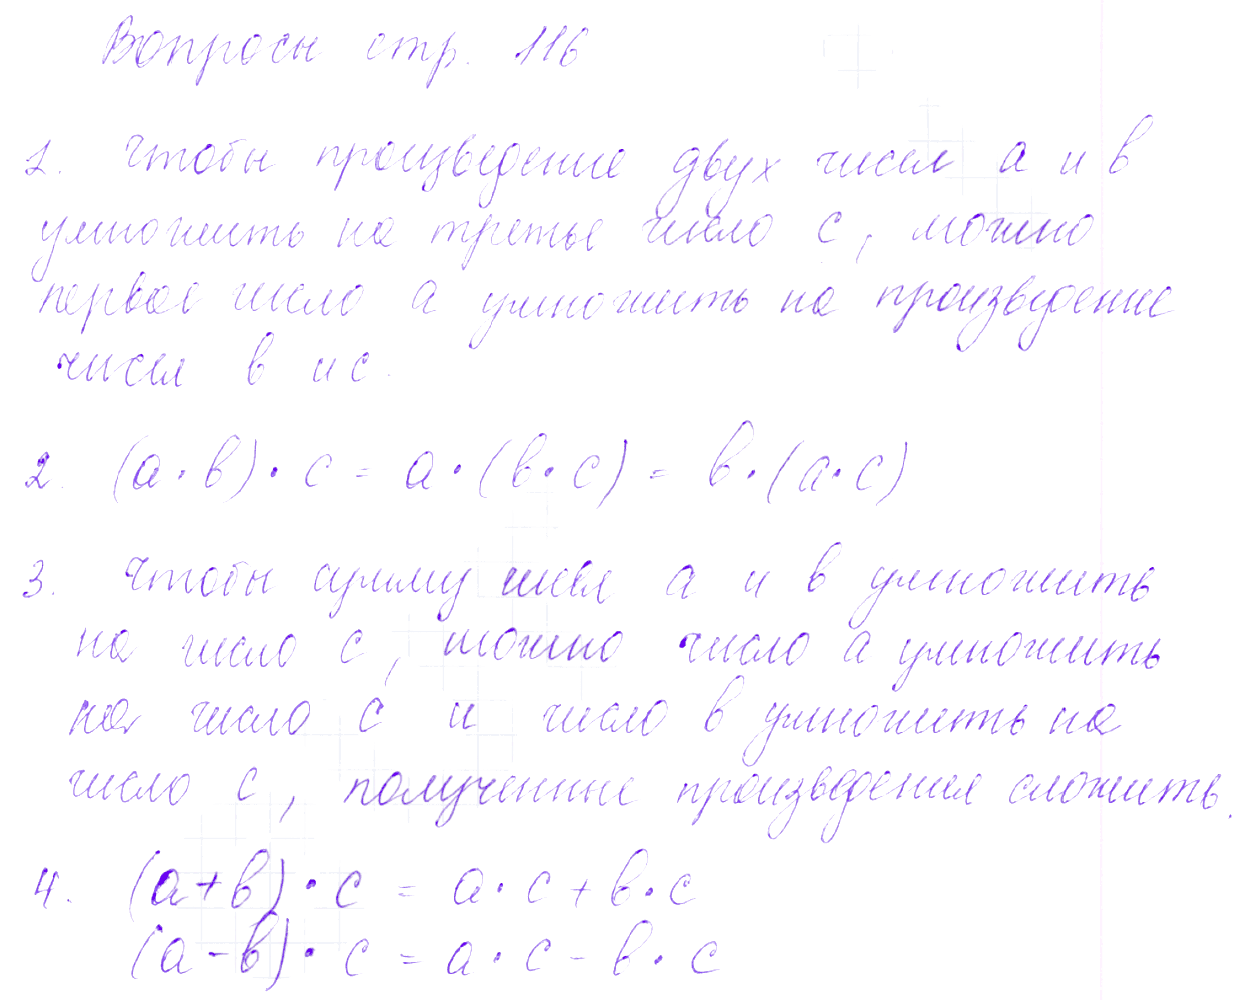 Вопросы стр. 116
1. Чтобы произведение двух чисел а и в
умножить на третье число с, можно
первое число а умножить на произведение
чисел в и с.
2. (а · в) · с = а · (в · с) = в · (а · с)
3. Чтобы сумму чисел а и в умножить
на число с, можно число а умножить
на число с и число в умножить на
число с, полученные произведения сложить.
4. (а + в) · с = а · с + в · с
(а - в) · с = а · с - в · с